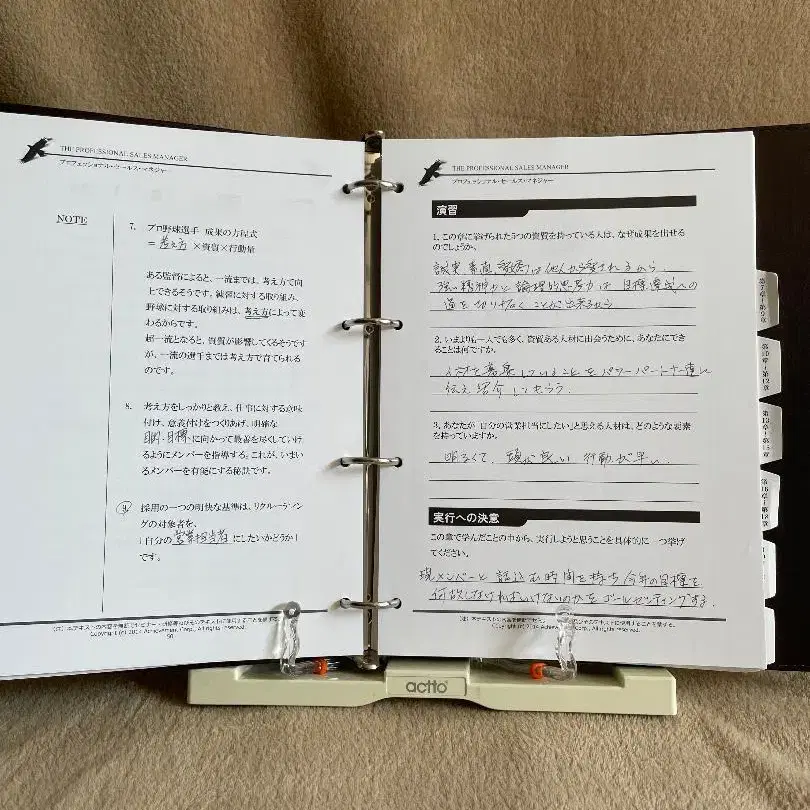 THE PROFESSIONAL SALES MANAGER
プロフェッショナル・セールス・マネジャー
NOTE
7. プロ野球選手 成果の方程式
= 考え方 ×資質×行動量
ある監督によると、一流までは、考え方で向
上できるそうです。練習に対する取り組み、
野球に対する取り組みは、考え方によって変
わるからです。
超一流となると、資質が影響してくるそうです
が、一流の選手までは考え方で育てられる
のです。
8. 考え方をしっかりと教え、仕事に対する意味
付け、意義付けをつくりあげ、明確な
目的・目標に向かって最善を尽くしていけ
るようにメンバーを指導する。これが、いまい
るメンバーを有能にする秘訣です。
9. 採用の一つの明快な基準は、リクルーティン
グの対象者を、
「自分の営業担当者にしたいかどうか」
です。
(注)本テキストの内容を無断でセミナー・研修等
Copyright (c) 2014 Achievement Corp., All rights reserved.
50
THE PROFESSIONAL SALES MANAGER
プロフェッショナル・セールス・マネジャー
演習
1. この章に挙げられた5つの資質を持っている人は、なぜ成果を出せる
のでしょうか。
誠実 素直 は他人から愛されるから
強い精神力と論理的思考力は 目標達成への
道を切り拓くことが出来るから
2. いまよりも一人でも多く、資質ある人材に出会うために、あなたにでき
ることは何ですか。
人材を募集していることをパワーパートナー達に
伝え 紹介してもらう
3. あなたが「自分の営業担当にしたい」と思える人材は、どのような要素
を持っていますか。
明るくて、頭が良い 行動が早い
実行への決意
この章で学んだことの中から、実行しようと思うことを具体的に一つ挙げ
てください。
現メンバーと 話込む時間を持ち 今年の目標を
何故しなければいけないのかをゴールセッティングする。
(注)本テキストの内容を無断で
Copyright (c) 2014 Achievement Corp., All rights reserved.
第7章-第9章
第10章-第12章
第13章-第15章
第16章-第18章
actto